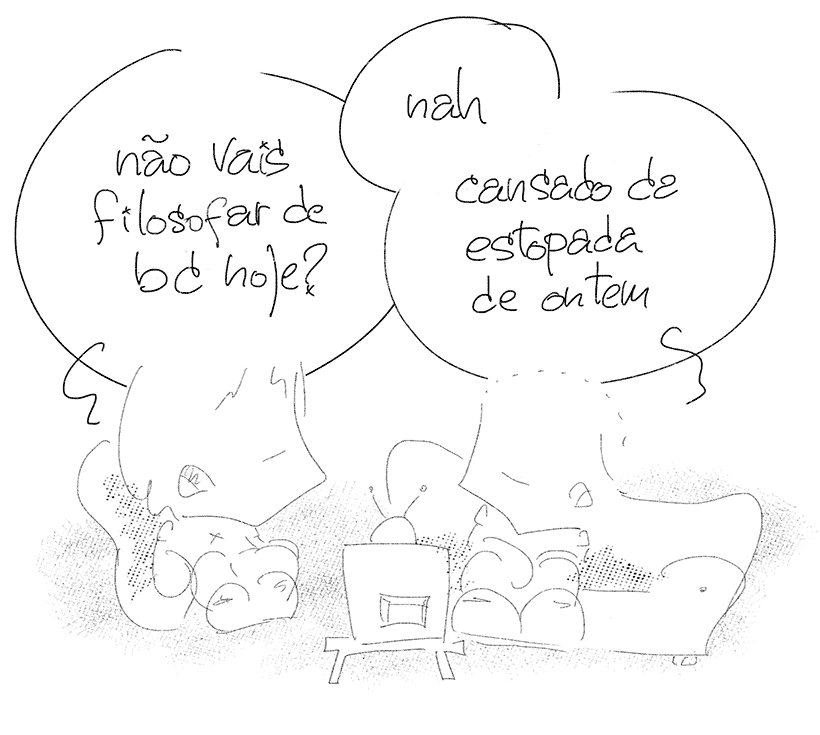 não vais
filosofar de
bd hoje?
nah
cansado da
estopada
de ontem